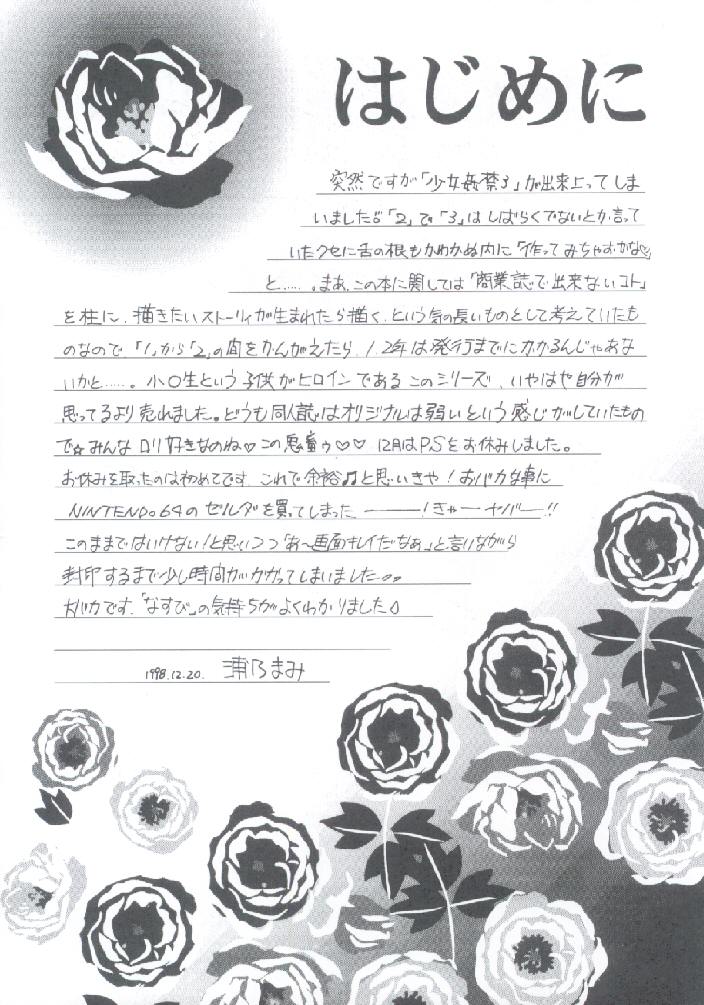 はじめに
突然ですが「少女姦禁3」が出来上ってしま
いました。「2」で「3」はしばらくでないとか言って
いたクセに舌の根もかわかぬ内に「作ってみちゃおかな♡
と……。まあ、この本に関しては「商業誌で出来ないコト」
を柱に、描きたいストーリィが生まれたら描く、という気の長いものとして考えていたも
のなので、「1」から「2」の間をかんがえたら、1、2年は発行までにかかるんじゃあな
いかと……。小〇生という子供がヒロインであるこのシリーズ、いやはや自分が
思ってるより売れました。どうも同人誌はオリジナルは弱いという感じがしていたもの
で☆みんなロリ好きなのね♡この悪童ゥ♡♡ 12月はP.Sをお休みしました。
お休みを取ったのは初めてです。これで余裕♫と思いきや！おバカな事に
NINTENDO64のゼルダを買ってしまった ――――！ぎゃーヤバー!!
このままではいけない！と思いつつ「あ〜画面キレイだなぁ」と言いながら
封印するまで少し時間がかかってしまいました。。
おバカです。「なすび」の気持ちがよくわかりました。
1998.12.20. 浦乃まみ